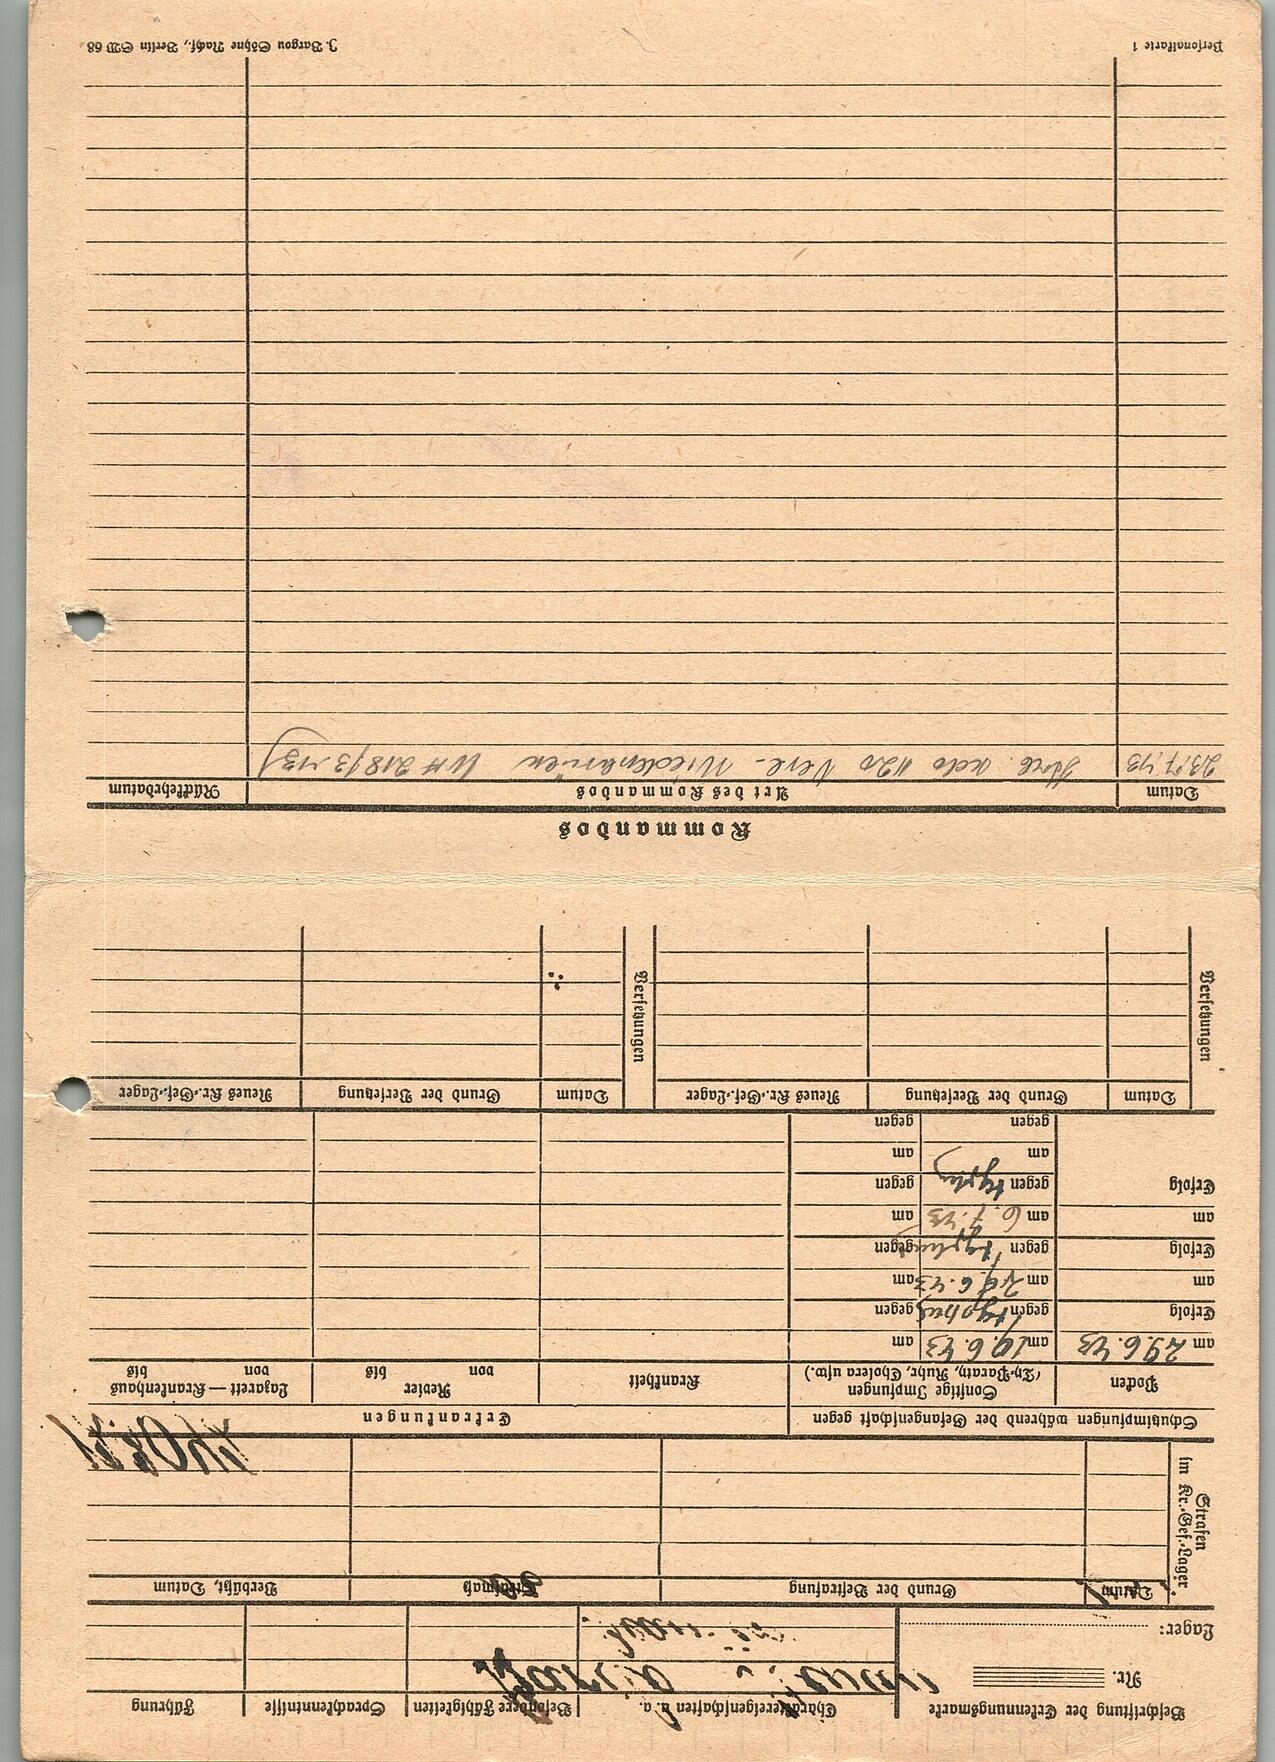 Beschriftung der Erkennungsmarke
Charaktereigenschaften u. a.
Besondere Fähigkeiten
Sprachkenntnisse
Führung
Nr.
Lager:
Strafen
im Kr.-Gef.-Lager
Datum
Grund der Bestrafung
Strafmaß
Verbüßt, Datum
Schutzimpfungen während der Gefangenschaft gegen
Erkrankungen
Pocken
Sonstige Impfungen
(Ty-Paraty, Ruhr, Cholera usw.)
Krankheit
Revier
von bis
Lazarett — Krankenhaus
von bis
am 29.6.43 am 19.6.43 am
Erfolg gegen typhus gegen
am am 29.6.43 am
Erfolg gegen typhus gegen
am am 6.7.43 am
Erfolg gegen typhus gegen
am am
gegen gegen
Versetzungen
Datum Grund der Versetzung Neues Kr.-Gef.-Lager
Versetzungen
Datum Grund der Versetzung Neues Kr.-Gef.-Lager
Kommandos
Datum Art des Kommandos Rückkehrdatum
23.7.43
Personalkarte 1
J. Bargou Söhne Nachf., Berlin SW 68